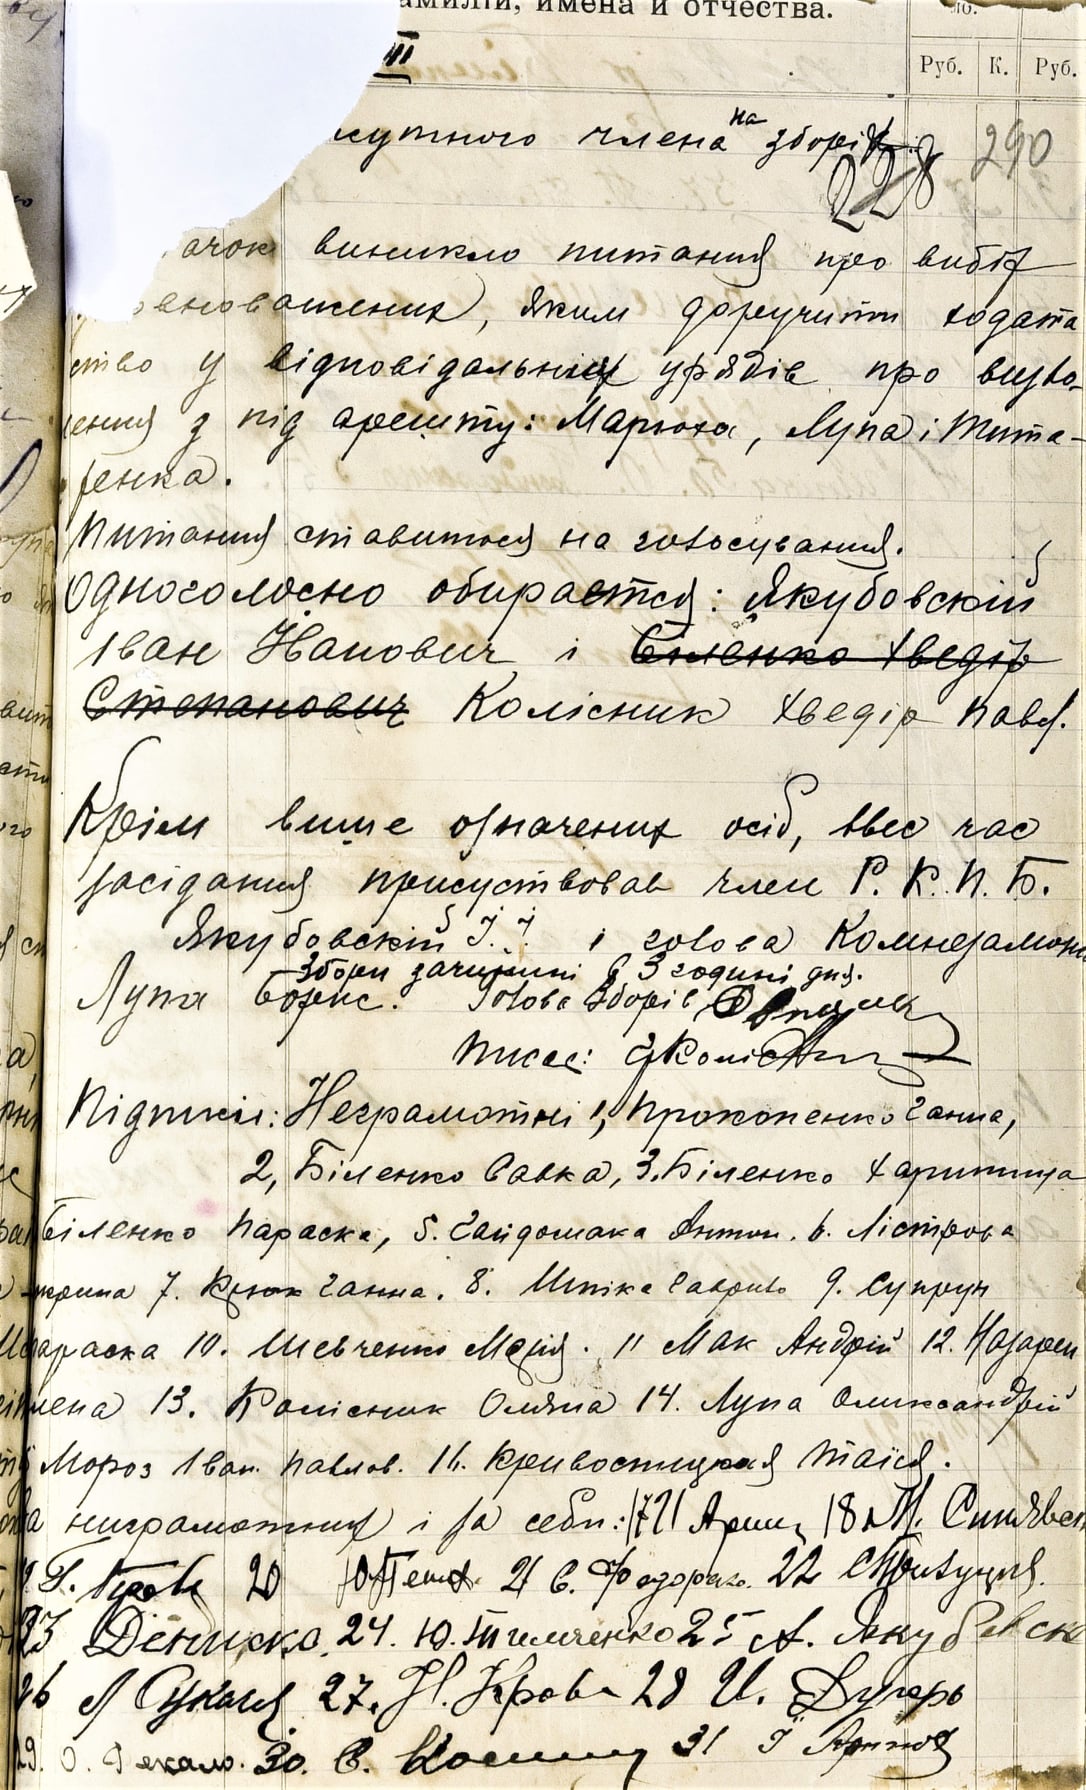 амилии, имена и отчества.
Руб. К. Руб.
кутного члена на зборі
290
228
ачок виникло питання про вибір
овноважених, яким доручити ходата
ство у відповідальних урядів про визво-
лення з під арешту: Марюха, Лупа і Тита-
ренка.
Питання ставиться на голосування.
Одноголосно обирается: Якубовскій
Іван Йванович і Біленко Хведір
Степанович Колісник Хведір Павл.
Крім више означених осіб, ввес час
засідання присуствовав член Р. К. П. Б.
Якубовскій І. І. і голова Комнезаможн
Збори зачинині в 3 годині дня.
Лупа Борис. Голова Зборів
Писав:
Підписи: Неграмотні 1, Прокопенко Ганна,
2, Біленко Савка, 3. Біленко Харитина
Біленко Параска, 5. Гайдамака Антон. 6. Лістрова
7. Крюк Ганна. 8. Шпіка Гаврило 9. Супрун
Параска 10. Шевченко Марія. 11 Мак Андрій 12. Назарен
13. Колісник Оляна 14. Лупа Олександрій
Мороз Іван Павлов. 16. Таїся.
неграмотних і за себя: 17 18 М. Синявск
Г. 20 21 С. Федорак. 22
23 Дениско. 24. Ю. Тимченко 25 А. Якубовск
26 27. Н. Кірова 28 И. Дугерь
29. О. 30. С. 31 І